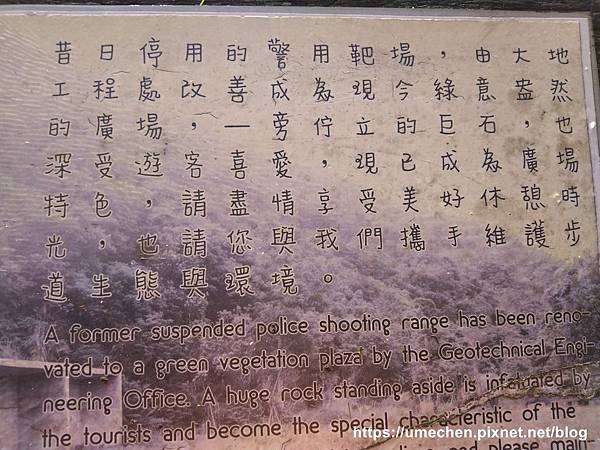 昔日停用的警用靶場，由大地
工程處改善成為現今綠意盎然
的廣場，一旁佇立的巨石，也
深受遊客喜愛，現已成為廣場
特色，請盡情享受美好休憩時
光，也請您與我們攜手維護步
道生態與環境。
A former suspended police shooting range has been reno-
vated to a green vegetation plaza by the Geotechnical Engi-
neering Office. A huge rock standing aside is infatuated by
the tourists and become the special characteristic of the
and please main-
https://umechen.pixnet.net/blog